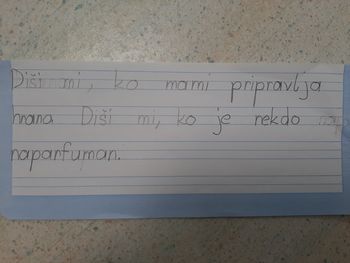 Diši mi, ko mami pripravlja
hrana Diši mi, ko je nekdo nap
naparfuman.